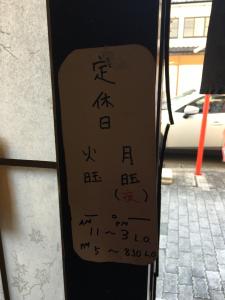 定休日
月旺
(夜)
火旺
AM 11 ～ PM 3 L.O.
PM 5 ～ 830 L.O